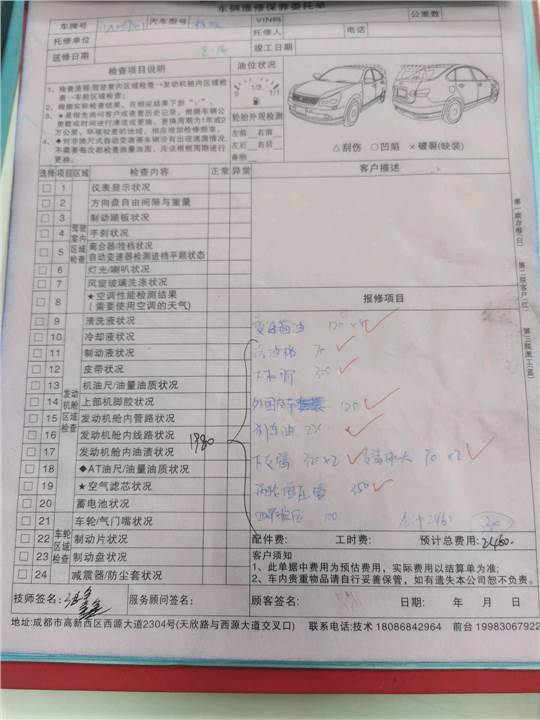 车辆维修保养委托单
车牌号 汽车型号 VIN码 公里数
托修单位 托修人 电话
送修日期 竣工日期
检查项目说明 油位状况
1、检查流程:驾驶室内区域检查→发动机舱内区域检查→车轮区域检查
2、根据实际检查结果，在相应结果下划“√”。
3、★是指先询问客户或查看历史记录，根据车辆公里数或时间进行清洁或更换。更换周期为1年或2万公里，环境较差的地域，相应增加检修频率。
4、◆对非油尺式自动变速器车辆没有出现渗漏情况，不需要每次都检查测量油面，应该根据周期进行更换。
1/2 1/1
轮胎外观检测
左前 右前
左后 右后
备胎
△刮伤 ○凹陷 ×破裂(缺装)
选择 项目 区域 检查内容 正常 异常 客户描述
驾驶室内区域检查
1 仪表显示状况
2 方向盘自由间隔与重量
3 制动踏板状况
4 手刹状况
5 离合器/挂档状况
自动变速器检测进档平顺状态
6 灯光/喇叭状况
7 风窗玻璃洗涤状况
8 ★空调性能检测结果
(需要使用空调的天气)
报修项目
发动机舱区域检查
9 清洗液状况
变速箱油 120×4
10 冷却液状况
11 制动液状况
70
12 皮带状况
350
13 机油尺/油量油质状况
14 上部机脚胶状况
120
15 发动机舱内管路状况
刹车油
16 发动机舱内线路状况
1980
17 发动机舱内油渍状况
×2 70×2
18 ◆AT油尺/油量油质状况
19 ★空气滤芯状况
350
20 蓄电池状况
车轮区域检查
21 车轮/气门嘴状况
100 2460
22 制动片状况
配件费: 工时费: 预计总费用:2460.
23 制动盘状况
24 减震器/防尘套状况
客户须知
1、此单据中费用为预估费用，实际费用以结算单为准;
2、车内贵重物品请自行妥善保管，如有遗失本公司恕不负责。
第一联存根(白)
第二联客户(红)
第三联派工(蓝)
技师签名: 服务顾问签名: 顾客签名: 日期: 年 月 日
地址:成都市高新西区西源大道2304号(天欣路与西源大道交叉口) 联系电话:技术 18086842964 前台 19983067922